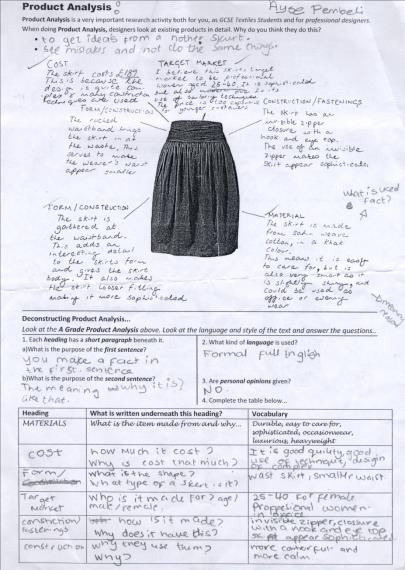 Product Analysis
Ayse Pembeli
Product Analysis is a very important research activity both for you, as GCSE Textiles Students and for professional designers.
When doing Product Analysis, designers look at existing products in detail. Why do you think they do this?
• to get ideas from a nother skirt.
• See mistakes and not do the same thing.
COST
The skirt costs £189
This is because the
design is quite
complex & many construction
techniques are used
TARGET MARKET
I believe this skirts target
market to be professional
women aged 25-40. It is sophisticated
use of tailoring techniques
to younger customers
CONSTRUCTION/FASTENINGS
The skirt has an
invisible zipper
closure with a
hook and eye top.
The use of an invisible
zipper makes the
skirt appear sophisticated.
FORM/CONSTRUCTION
The ruched
waistband brings
the skirt in at
the waste, this
serves to make
the wearer's waist
appear smaller
what is used
fact?
FORM/CONSTRUCTION
The skirt is
gathered at
the waistband.
This adds an
interesting detail
to the skirts form
and gives the skirt
body. It also makes
the skirt looser fitting
making it more sophisticated
MATERIAL
The skirt is made
from satin weave
cotton, in a
colour.
This means it is easy
to care for, but is
also very smart as it
is slightly shiny, and
could be used as
office or evening
wear
Deconstructing Product Analysis...
Look at the A Grade Product Analysis above. Look at the language and style of the text and answer the questions..
1. Each heading has a short paragraph beneath it.
a)What is the purpose of the first sentence?
you make a fact in
the first sentence
b)What is the purpose of the second sentence?
The meaning why it is?
like that.
2. What kind of language is used?
Formal full English
3. Are personal opinions given?
NO.
4. Complete the table below...
Heading What is written underneath this heading? Vocabulary
MATERIALS What is the item made from and why... Durable, easy to care for,
sophisticated, occasionwear,
luxurious, heavyweight
COST how Much it cost?
Why is cost that much?
It is good quilty, good
use of technique, design
of complex
Form/ what is the shape?
What type of a skert is it?
wast skirt, smaller waist
Target
Market
Who is it made for? age/
male/female.
25-40 for female
women
constrction/
fastenings
how is it made?
Why does it have this?
invisible zipper, closure
with a hook and eye top
appear sophisticated
construction why they use them?
Why?
more colorful and
more calm